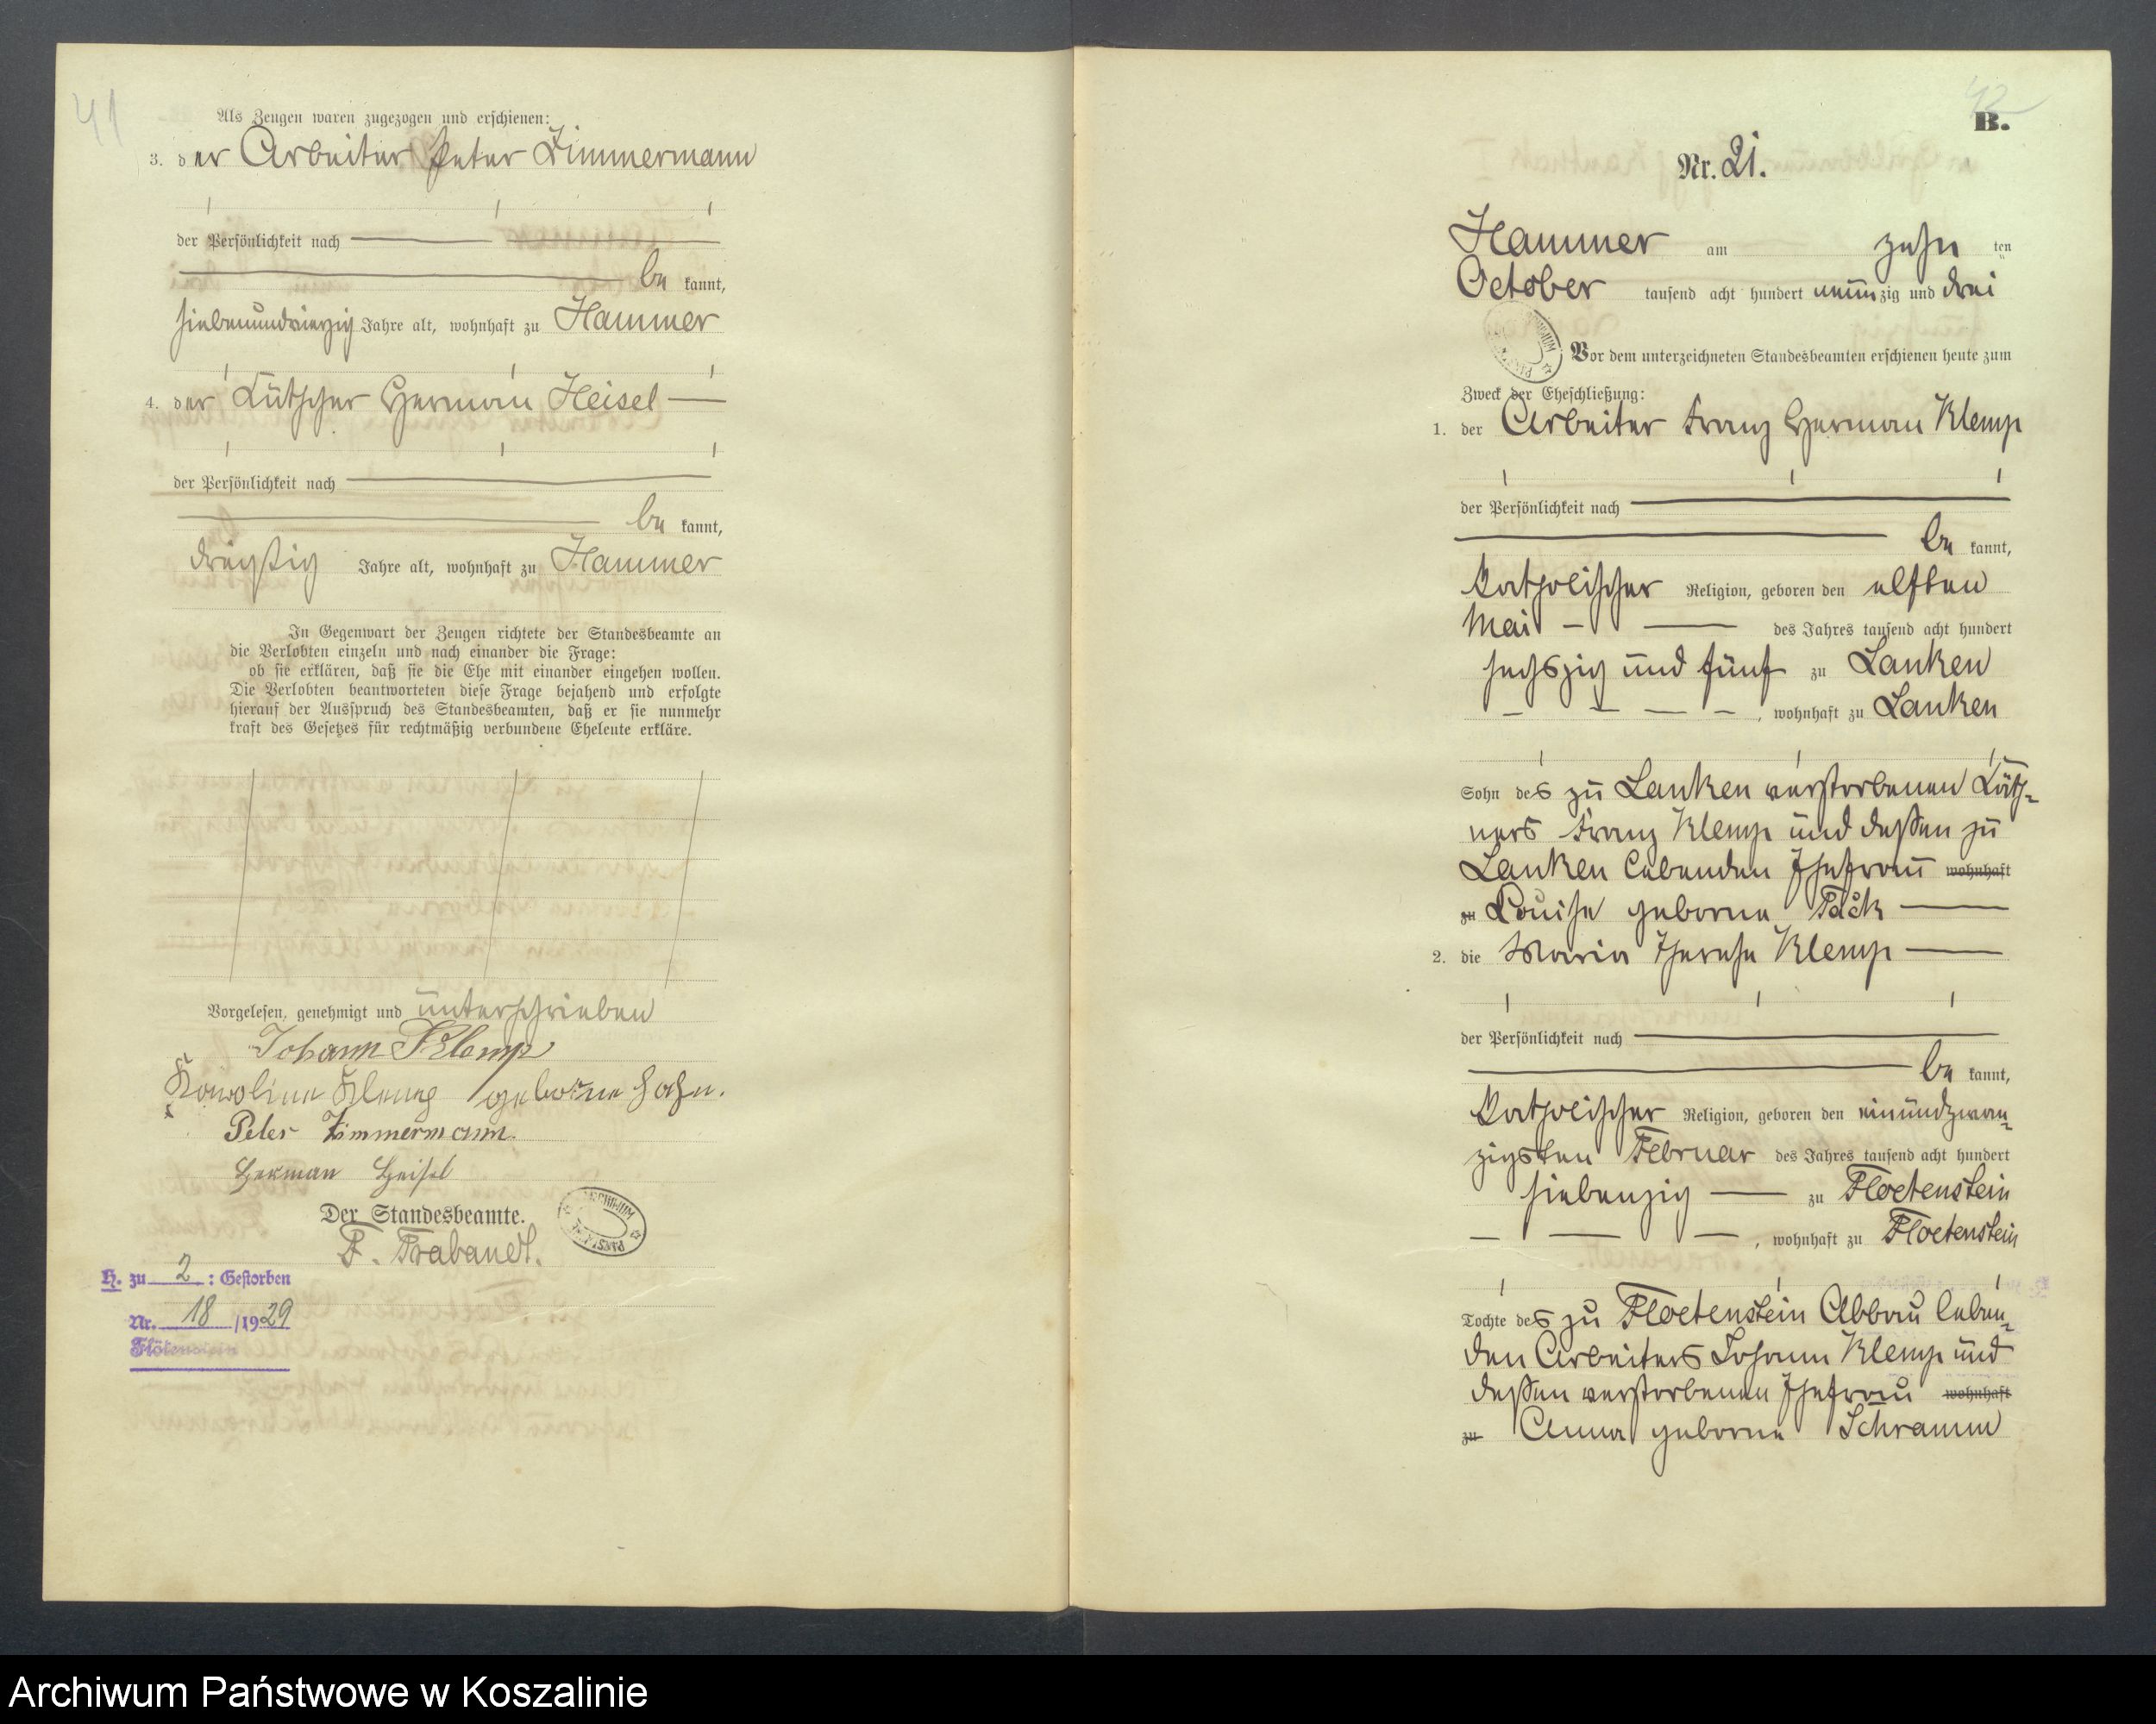 41
Als Zeugen waren zugezogen und erschienen:
3. der Arbeiter Peter Zimmermann
der Persönlichkeit nach
be kannt,
siebenundvierzig Jahre alt, wohnhaft zu Hammer
4. der Kätscher Herman Heisel
der Persönlichkeit nach
be kannt,
dreißig Jahre alt, wohnhaft zu Hammer
In Gegenwart der Zeugen richtete der Standesbeamte an
die Verlobten einzeln und nach einander die Frage:
ob sie erklären, daß sie die Ehe mit einander eingehen wollen.
Die Verlobten beantworteten diese Frage bejahend und erfolgte
hierauf der Ausspruch des Standesbeamten, daß er sie nunmehr
kraft des Gesetzes für rechtmäßig verbundene Eheleute erkläre.
Vorgelesen, genehmigt und unterschrieben
Johann Klemp
Klemp geborne Hahn.
Peter Zimmermann.
Herman Heisel
Der Standesbeamte.
F. Trabandt.
H. zu 2 : Gestorben
Nr. 18 /1929
Flötenstein
42
B.
Nr. 21.
Hammer am zehn ten
October tausend acht hundert neunzig und drei
Vor dem unterzeichneten Standesbeamten erschienen heute zum
Zweck der Eheschließung:
1. der Arbeiter Franz Herman Klemp
der Persönlichkeit nach
be kannt,
katholischer Religion, geboren den elften
Mai des Jahres tausend acht hundert
sechszig und fünf zu Lanken
, wohnhaft zu Lanken
Sohn des zu Lanken verstorbenen Käth-
ners Franz Klemp und deßen zu
Lanken lebenden Ehefrau wohnhaft
zu Louise geborne Tack
2. die Maria Therese Klemp
der Persönlichkeit nach
be kannt,
katholischer Religion, geboren den einundzwan-
zigsten Februar des Jahres tausend acht hundert
siebenzig zu Floetenstein
, wohnhaft zu Floetenstein
Tochte des zu Floetenstein Abbau leben-
den Arbeiters Johann Klemp und
deßen verstorbenen Ehefrau wohnhaft
zu Anna geborne Schramm
Archiwum Państwowe w Koszalinie